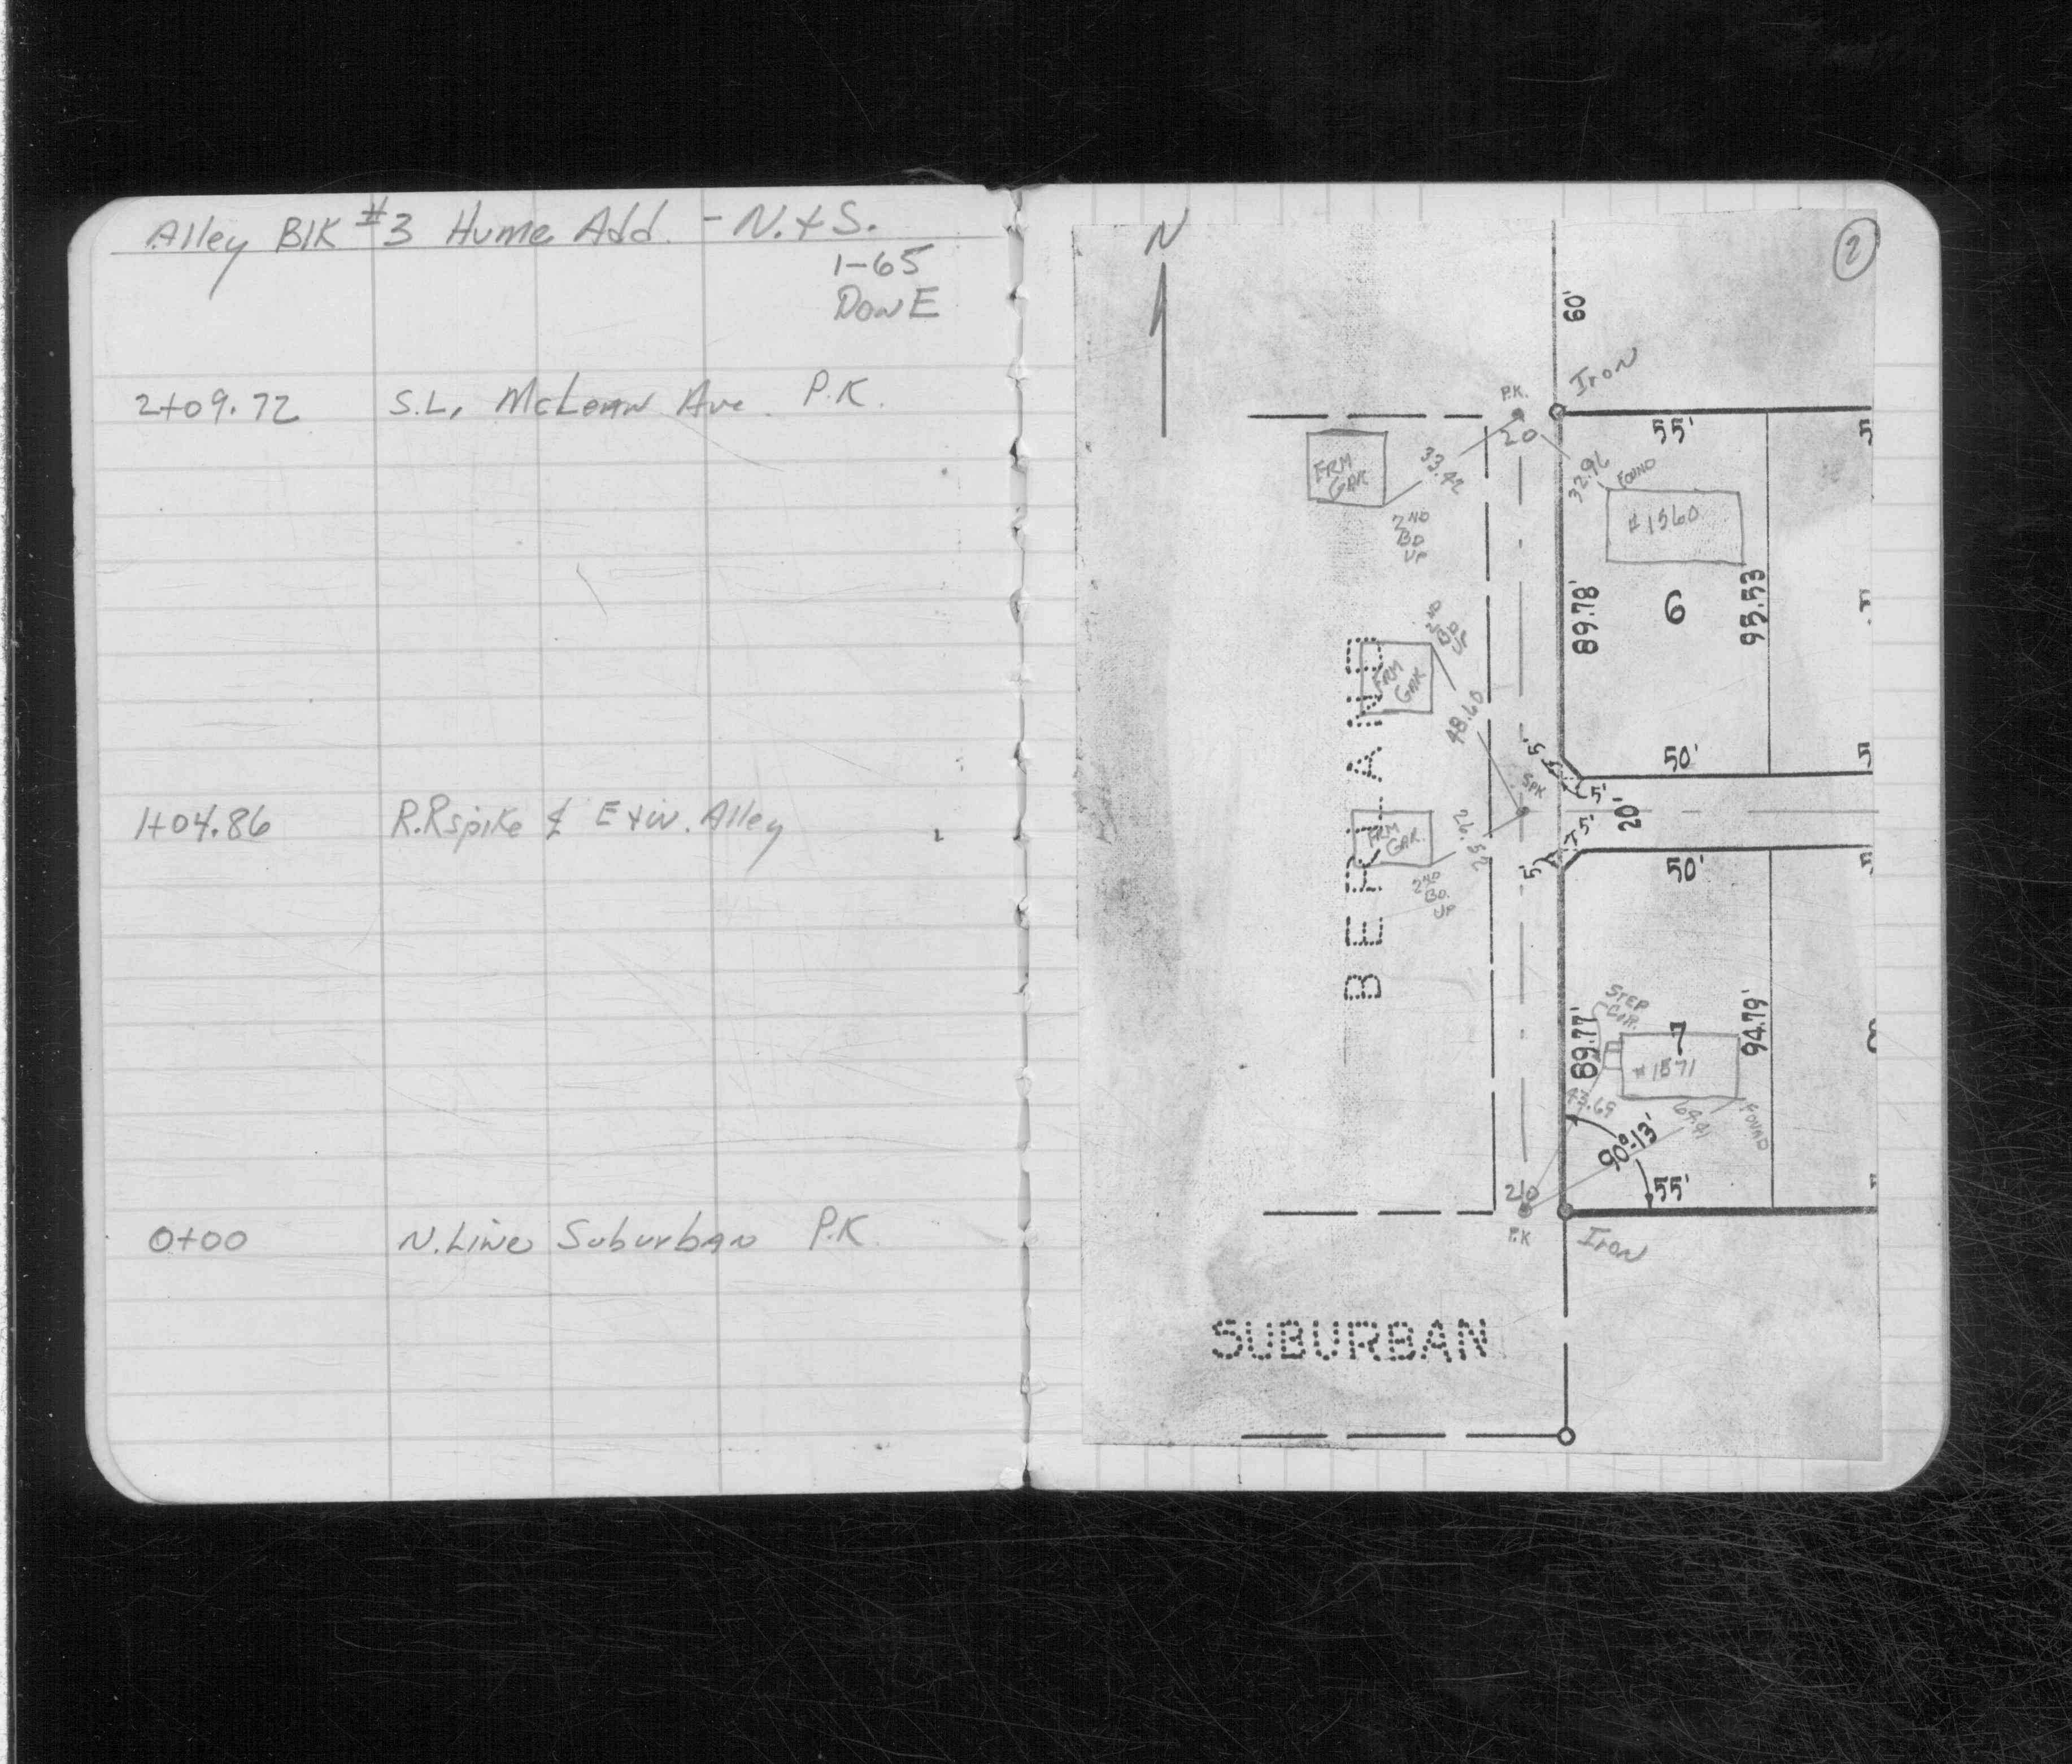 Alley Blk #3 Hume Add. - N. & S.
1-65
DonE
2+09.72 S.L. McLean Ave. P.K.
1+04.86 R.R spike ₵ E & W. Alley
0+00 N. Line Suburban P.K.
2
N
60'
Iron
P.K.
20
55'
5
FRM
GAR
33.42
32.96
FOUND
#1560
2ND
BD
UP
89.78'
6
95.53
2ND
BD
UP
FRM
GAR
48.60
BERLAND
50'
5
5'
SPK
5'
20'
FRM
GAR.
26.
5'
5'
50'
5
2ND
BD.
UP
STEP
COR.
89.77'
7
94.79'
#1571
43.69
64.41
FOUND
90°-13'
20
55'
P.K
Iron
SUBURBAN